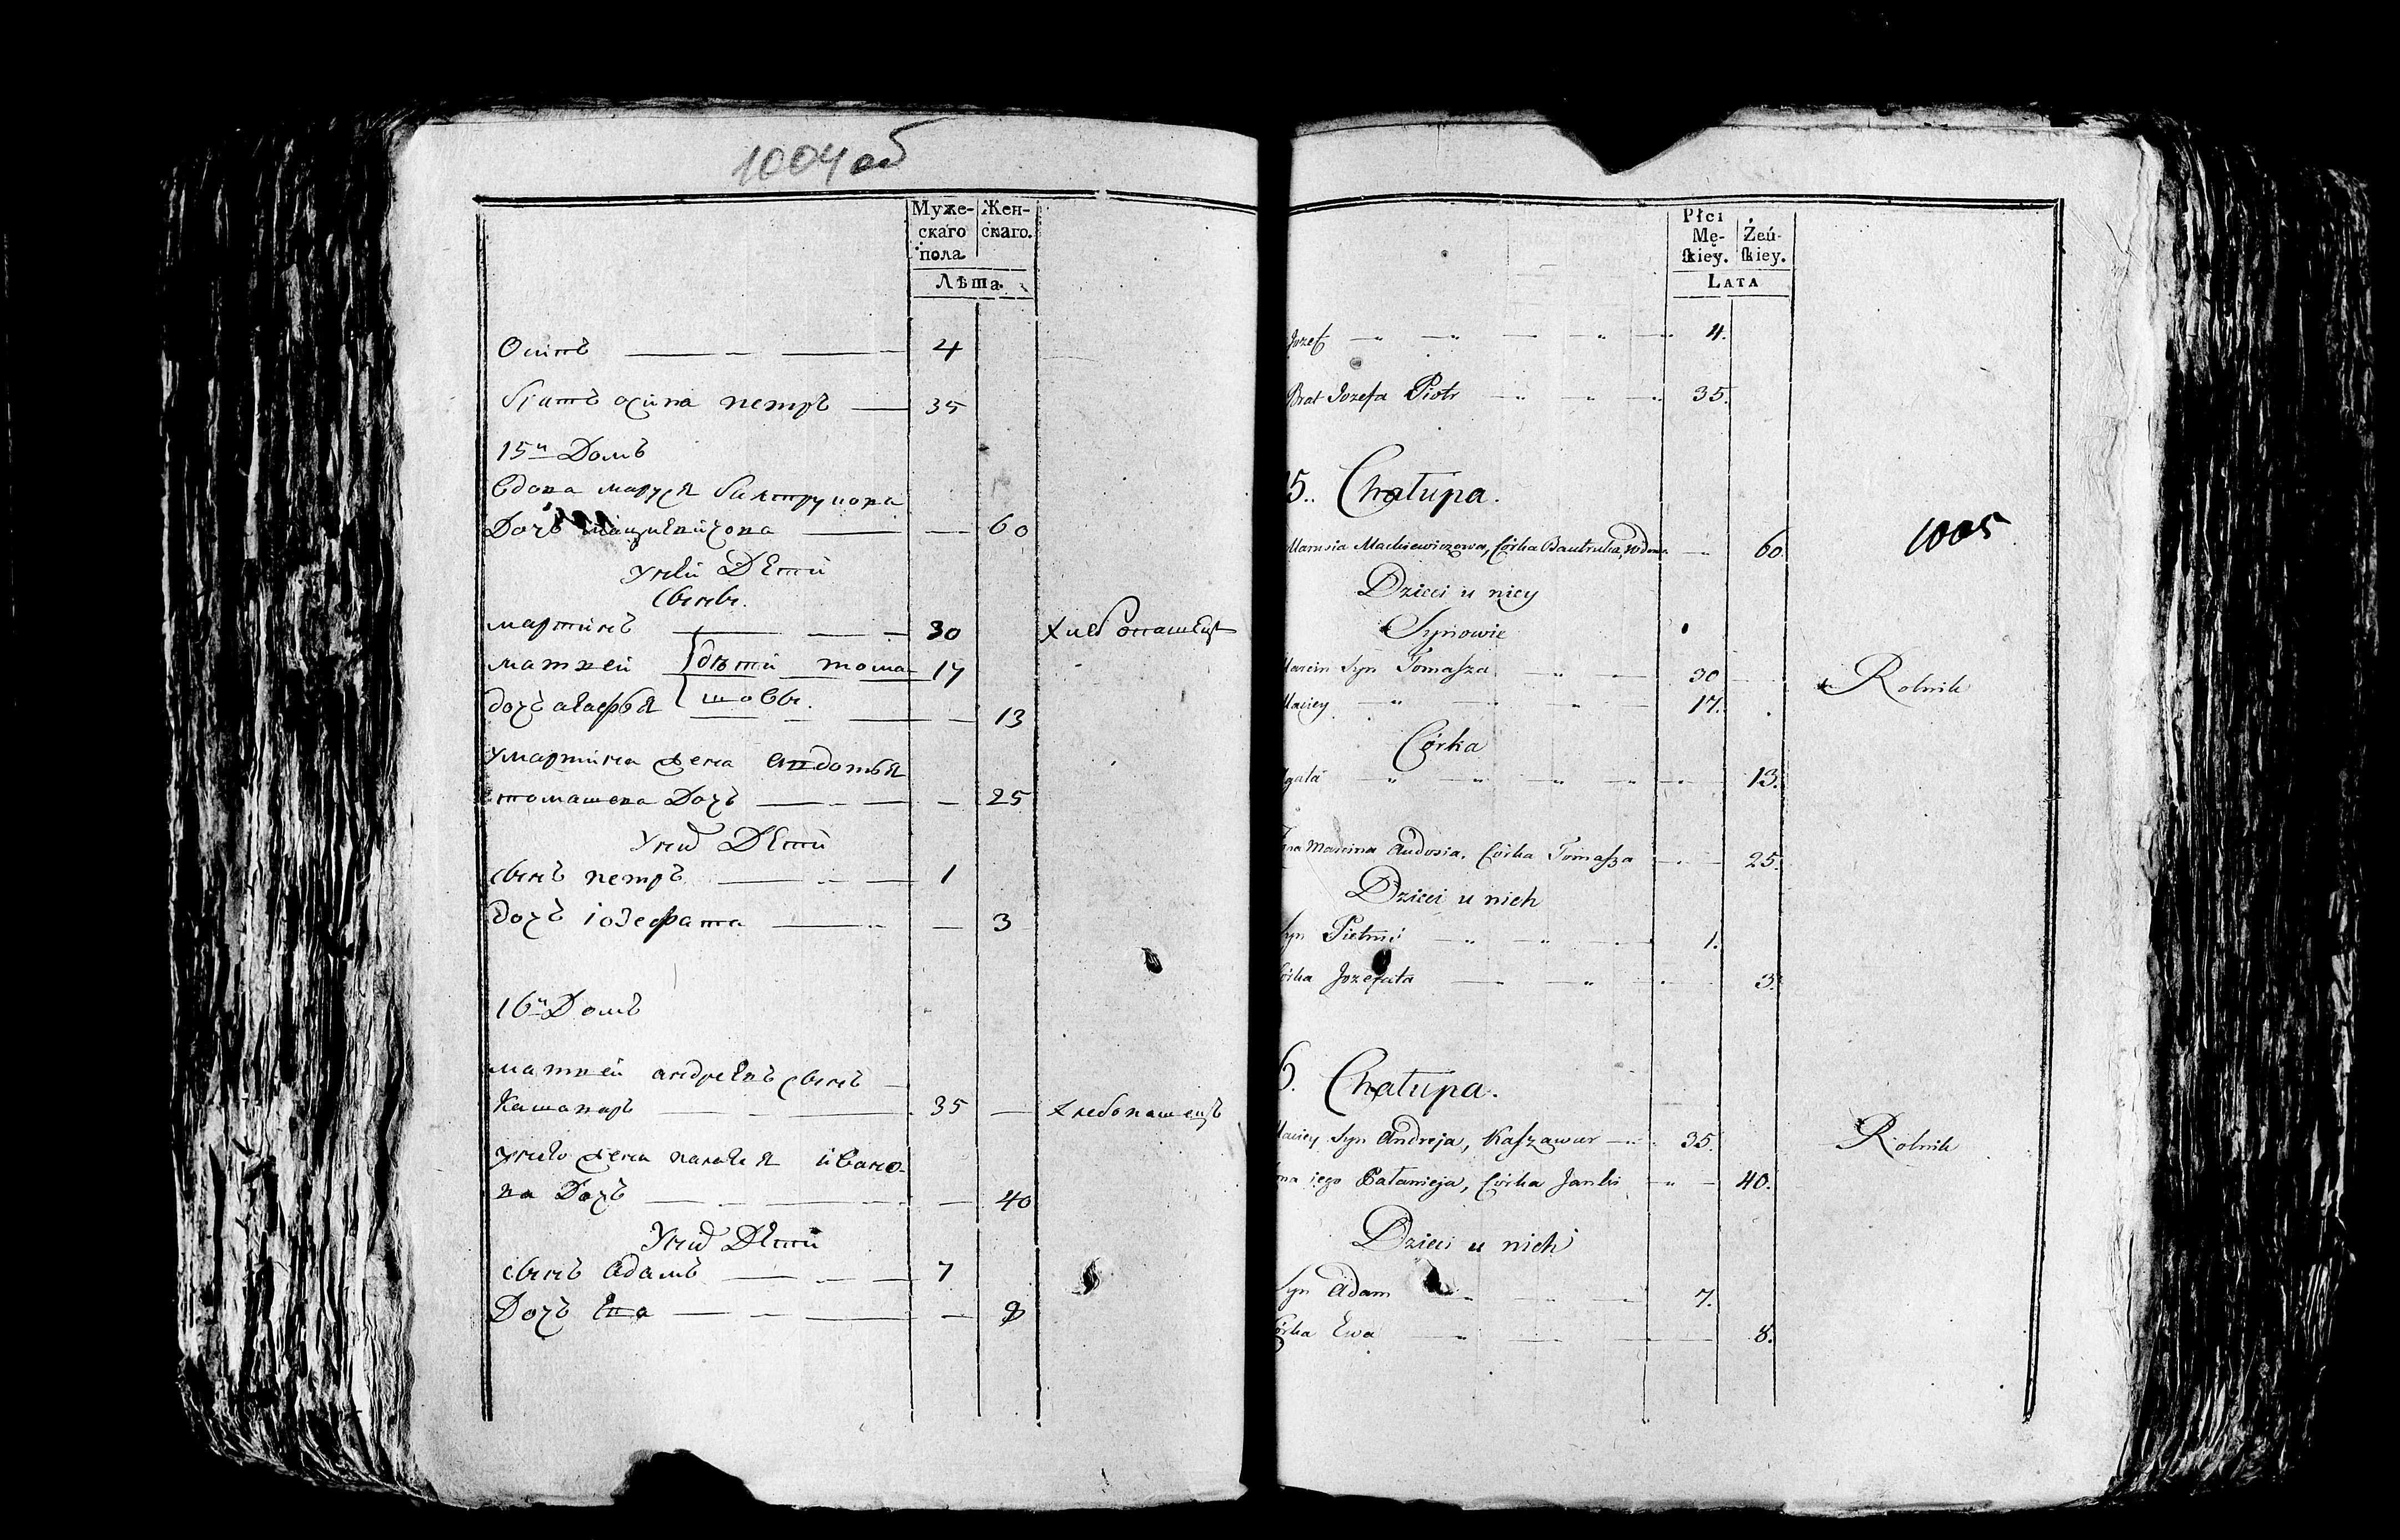 1004 об
Муже-
скаго
пола
Жен-
скаго.
Лѣта.
Осипъ 4
братъ осипа петръ 35
15й Домъ
вдова маруся балтрукова
Дочь мацкевичова 60
унеи Дети
сыны.
мартинъ 30 хлебопашецъ
матвеи дѣти тома- 17
дочъ агафья шовы. 13
умартина жена авдотья
томашева Дочъ 25
Уних Дети
сынъ петръ 1
дочъ іозефата 3
16й Домъ
матвеи андреевъ сынъ
Кашаваръ 35 хлебопашецъ
унево жена палагея ивано-
ва Дочъ 40
Уних Дети
сынъ адамъ 7
Дочъ Ева 8
Płci
Mę-
skiey.
Żeń-
skiey.
LATA
Jozef 4.
Brat Jozefa Piotr 35.
15. Chałupa.
1005
Marusia Mackiewiczowa, Córka Bautruka, Wdowa 60.
Dzieci u niey
Synowie
Marcin Syn Tomasza 30 Rolnik
Maciey 17.
Córka
Agata 13.
Żona Marcina Audosia, Córka Tomasza 25.
Dzieci u nich
Syn Pietruś 1.
Córka Jozefata 3.
16. Chałupa.
Maciey Syn Andreja, Kaszawar 35. Rolnik
Żona jego Pałanieja, Córka Janki 40.
Dzieci u nich
Syn Adam 7.
Córka Ewa 8.